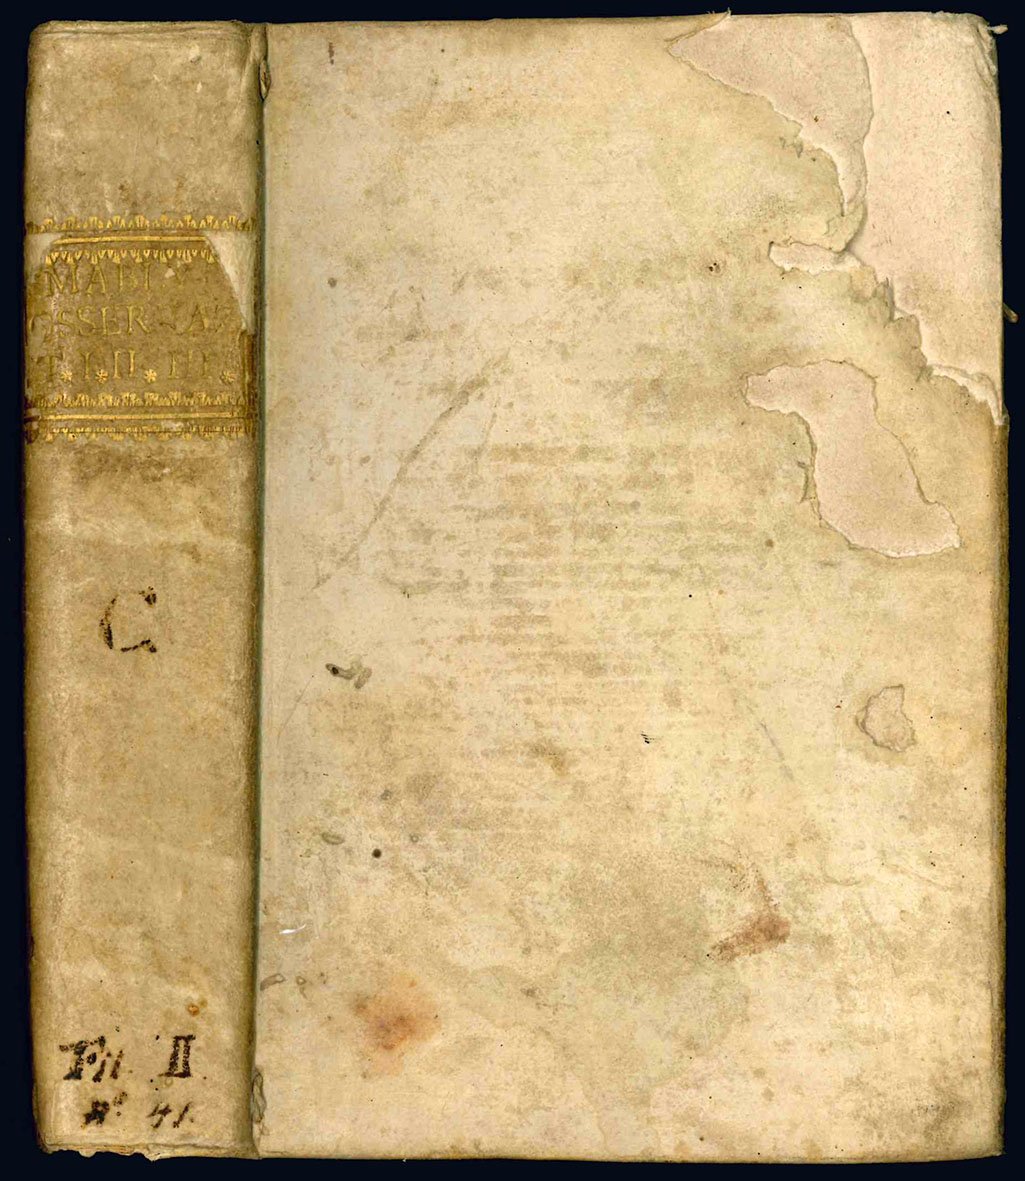 MABI
SSER A
T. I. II. III.
C
Fil. II.
N° 41.